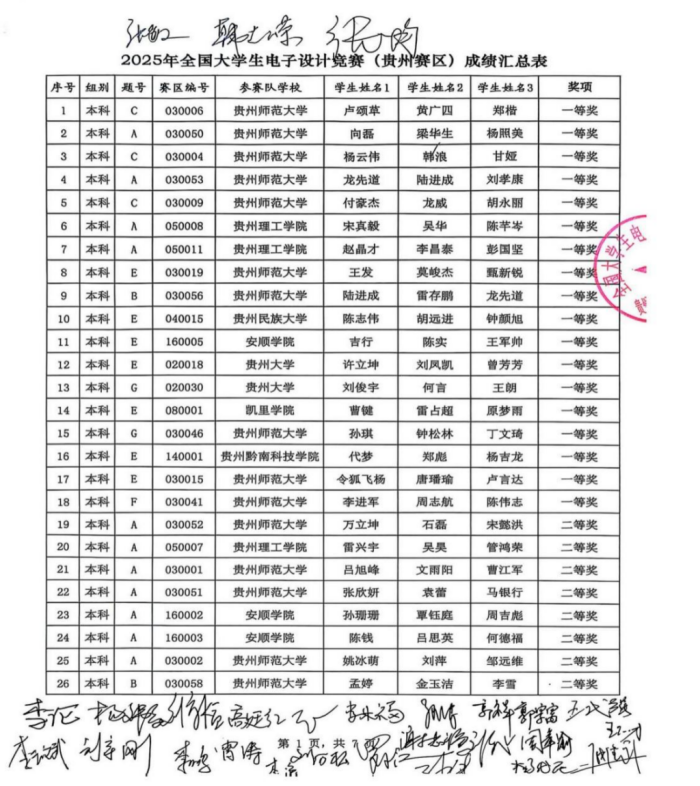 2025年全国大学生电子设计竞赛（贵州赛区）成绩汇总表
序号 组别 题号 赛区编号 参赛队学校 学生姓名1 学生姓名2 学生姓名3 奖项
1 本科 C 030006 贵州师范大学 卢颂草 黄广四 郑楷 一等奖
2 本科 A 030050 贵州师范大学 向磊 梁华生 杨照美 一等奖
3 本科 C 030004 贵州师范大学 杨云伟 韩浪 甘娅 一等奖
4 本科 A 030053 贵州师范大学 龙先道 陆进成 刘孝康 一等奖
5 本科 C 030009 贵州师范大学 付豪杰 龙威 胡永丽 一等奖
6 本科 A 050008 贵州理工学院 宋真毅 吴华 陈芊岑 一等奖
7 本科 A 050011 贵州理工学院 赵晶才 李昌泰 彭国坚 一等奖
8 本科 E 030019 贵州师范大学 王发 莫峻杰 甄新锐 一等奖
9 本科 B 030056 贵州师范大学 陆进成 雷存鹏 龙先道 一等奖
10 本科 E 040015 贵州民族大学 陈志伟 胡远进 钟颜旭 一等奖
11 本科 E 160005 安顺学院 吉行 陈实 王军帅 一等奖
12 本科 E 020018 贵州大学 许立坤 刘凤凯 曾芳芳 一等奖
13 本科 G 020030 贵州大学 刘俊宇 何言 王朗 一等奖
14 本科 E 080001 凯里学院 曹键 雷占超 原梦雨 一等奖
15 本科 G 030046 贵州师范大学 孙琪 钟松林 丁文琦 一等奖
16 本科 E 140001 贵州黔南科技学院 代梦 郑彪 杨吉龙 一等奖
17 本科 E 030015 贵州师范大学 令狐飞杨 唐璠瑜 卢言达 一等奖
18 本科 F 030041 贵州师范大学 李进军 周志航 陈伟志 一等奖
19 本科 A 030052 贵州师范大学 万立坤 石磊 宋懿洪 二等奖
20 本科 A 050007 贵州理工学院 雷兴宇 吴昊 管鸿荣 二等奖
21 本科 A 030001 贵州师范大学 吕旭峰 文雨阳 曹江军 二等奖
22 本科 A 030051 贵州师范大学 张欣妍 袁蕾 马银行 二等奖
23 本科 A 160002 安顺学院 孙珊珊 覃钰庭 周吉彪 二等奖
24 本科 A 160003 安顺学院 陈钱 吕思英 何德福 二等奖
25 本科 A 030002 贵州师范大学 姚冰萌 刘萍 邹远维 二等奖
26 本科 B 030058 贵州师范大学 孟婷 金玉洁 李雪 二等奖
全国大学生电
第 1 页，共 7 页